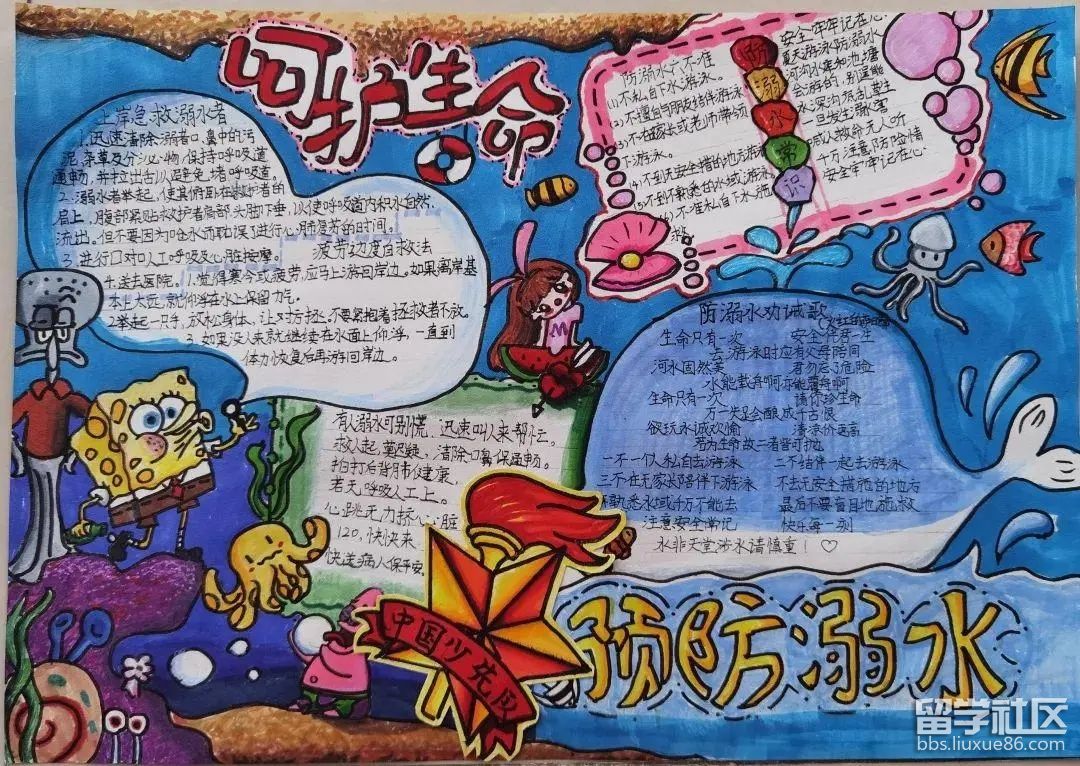 呵护生命
上岸急救溺水者
1.迅速清除溺者口、鼻中的污
泥、杂草及分泌物,保持呼吸道
通畅,并拉出舌头,以避免堵呼吸道。
2.溺水者举起,使其俯卧在救护者的
肩上,腹部紧贴救护者肩部,头脚下垂,以使呼吸道内积水自然
流出。但不要因为呛水而耽误了进行心肺复苏的时间。
3.进行口对口人工呼吸及心脏按摩。
4.送去医院。
疲劳过度自救法
1.觉得寒冷或疲劳,应马上游回岸边。如果离岸甚
本上太远,就仰浮在水上保留力气。
2.举起一只手,放松身体,让对方拯,不要紧抱着拯救者不放
3.如果没人来就继续在水面上仰浮,一直到
体力恢复后再游回岸边。
防溺水六不准
(1)不私自下水游泳。
(2)不擅自与朋友结伴游泳
(3)不在家长或老师带领
下游泳。
(4)不到无安全措的地方游
(5)不到不熟悉的水域游泳
(6)不准私自下水
防
溺
水
常
识
安全牢牢记在心
夏天游泳防溺水
河沟水库和池塘
会游的,别逞能
水深沟
一旦发生溺水害
喊人救命无人听
千万注意防险情
安全牢牢记在心
有人溺水可别慌,迅速叫人来帮忙。
救人起,莫迟疑,清除口鼻保通畅。
拍打后背
若无呼吸人工上。
心跳无力挤心脏
120,快快来
快送病人保平安。
防溺水劝诫歌
生命只有一次 安全伴君一生
去游泳时应有父母陪同
河水固然美 君勿忘了危险
水能载舟啊亦能覆舟啊
生命只有一次 请你珍生命
万一失足会酿成千古恨
欲玩水诚欢愉 清凉价更高
若为生命故二者皆可抛
一不一个人私自去游泳 二不结伴一起去游泳
三不在无家长陪伴下游泳 不去无安全措施的地方
不熟悉水域千万不能去 最后不要盲目地施救
注意安全常记 快乐每一刻
水非天堂涉水请慎重!♡
中国少先队
预防溺水
留学社区
bbs.liuxue86.com